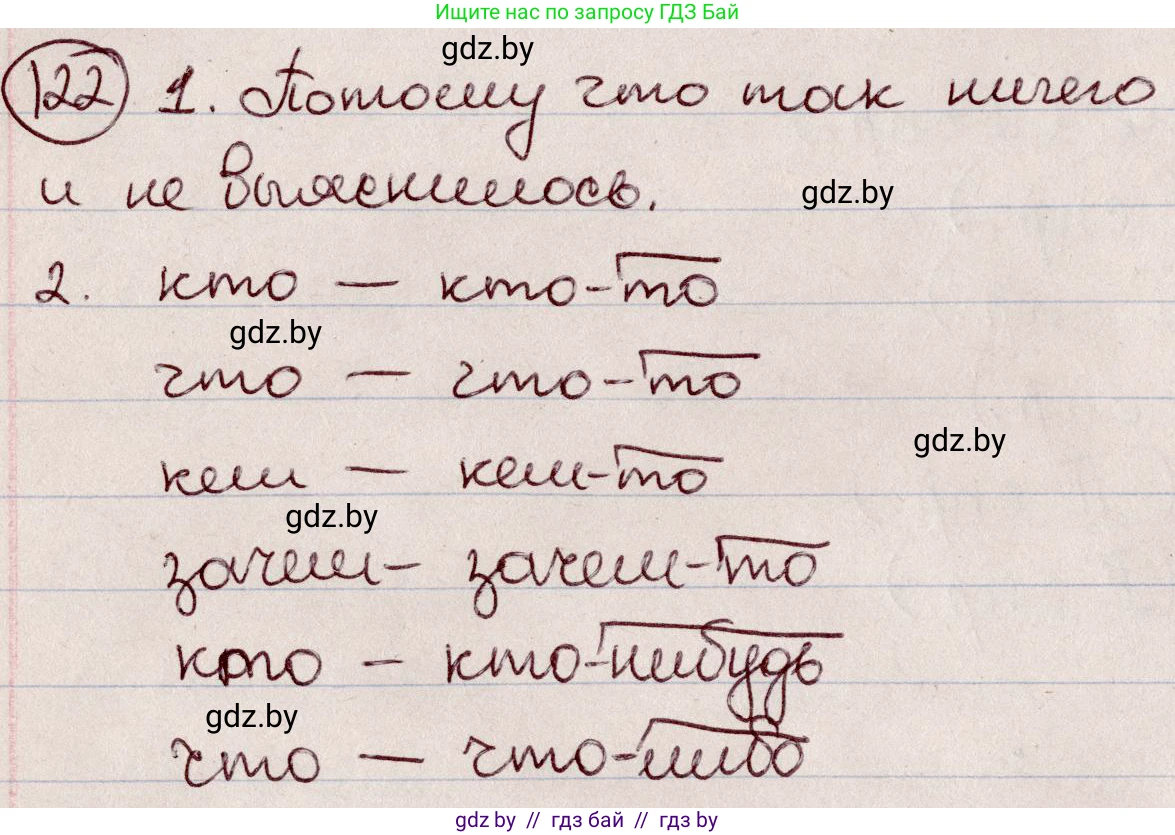 Ищите нас по запросу ГДЗ Бай
gdz.by
122 1. Потому что так ничего
и не выяснилось.
gdz.by
2. кто — кто-то
gdz.by
что — что-то
gdz.by
кем — кем-то
gdz.by
зачем - зачем-то
кто - кто-нибудь
gdz.by
что — что-либо
gdz.by // гдз бай // гдз by